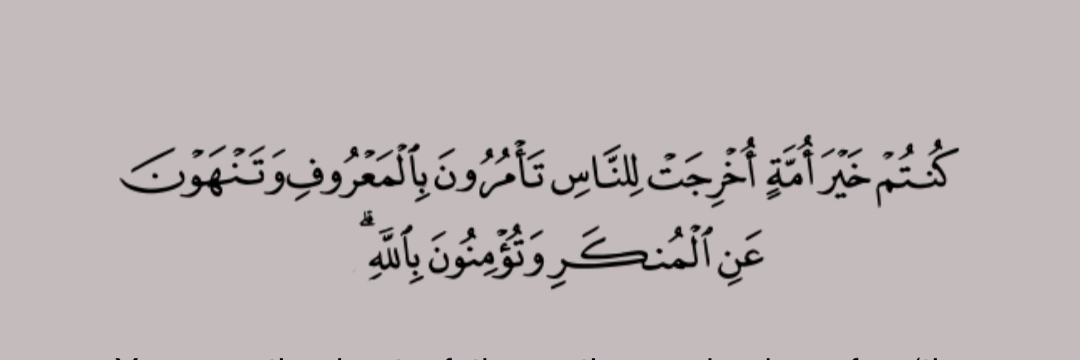 كُنتُمْ خَيْرَ أُمَّةٍ أُخْرِجَتْ لِلنَّاسِ تَأْمُرُونَ بِٱلْمَعْرُوفِ وَتَنْهَوْنَ
عَنِ ٱلْمُنكَرِ وَتُؤْمِنُونَ بِٱللَّهِ ۗ